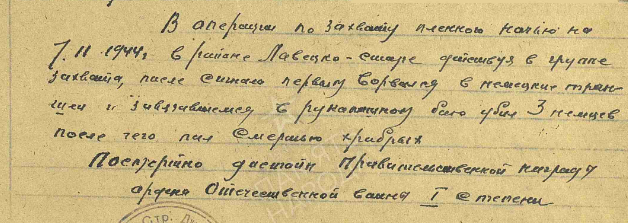 В операции по захвату пленного ночью на
7.11.1944г. в районе Лавецко-старе действуя в группе
захвата, после сигнала первым ворвался в немецкие тран-
шеи и завязавшемся в рукопашном бою убил 3 немцев
после чего пал смертью храбрых
Посмертно достоин Правительственной награды
ордена Отечественной войны I степени
Стр.